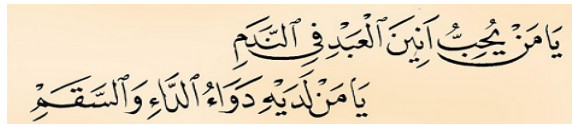 يَا مَنْ يُحِبُّ اَنِينَ الْعَبْدِ فِي النَّدَمِ
يَا مَنْ لَدَيْهِ دَوَاءُ الدَّاءِ وَالسَّقَمْ